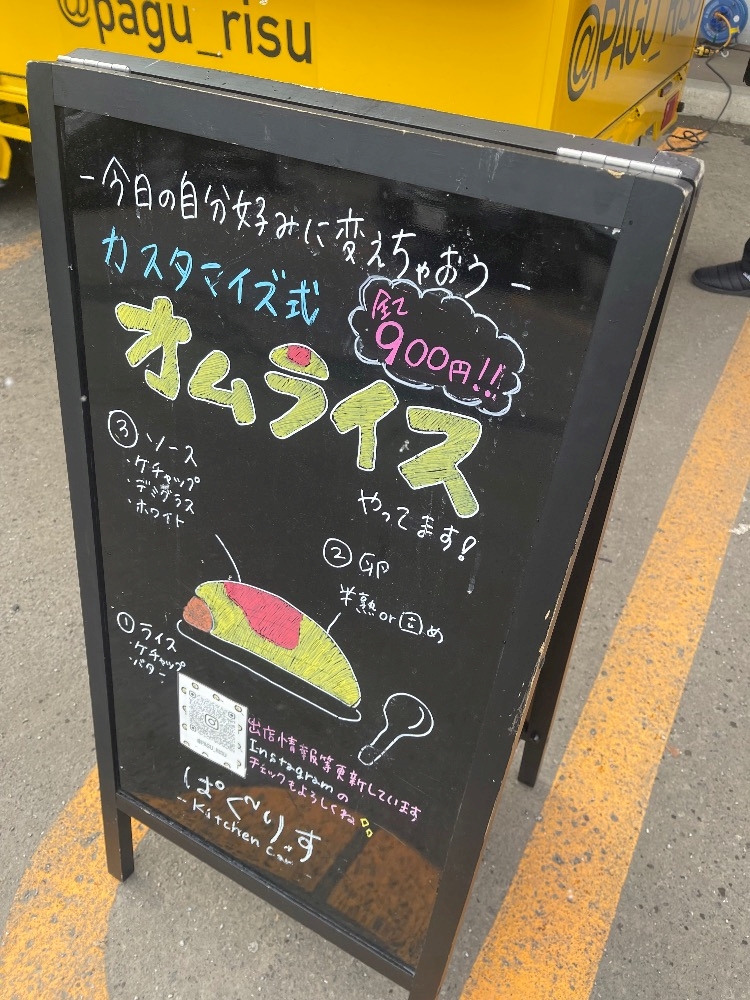 @pagu_risu
@PAGU_RISU
-今日の自分好みに変えちゃおう-
カスタマイズ式
全て
900円!!
オムライス
やってます!
③ソース
・ケチャップ
・デミグラス
・ホワイト
②卵
半熟or固め
①ライス
・ケチャップ
・バター
@PAGU_RISU
出店情報等更新しています
Instagramの
チェックもよろしくね
ぱぐりす
-Kitchen Car-